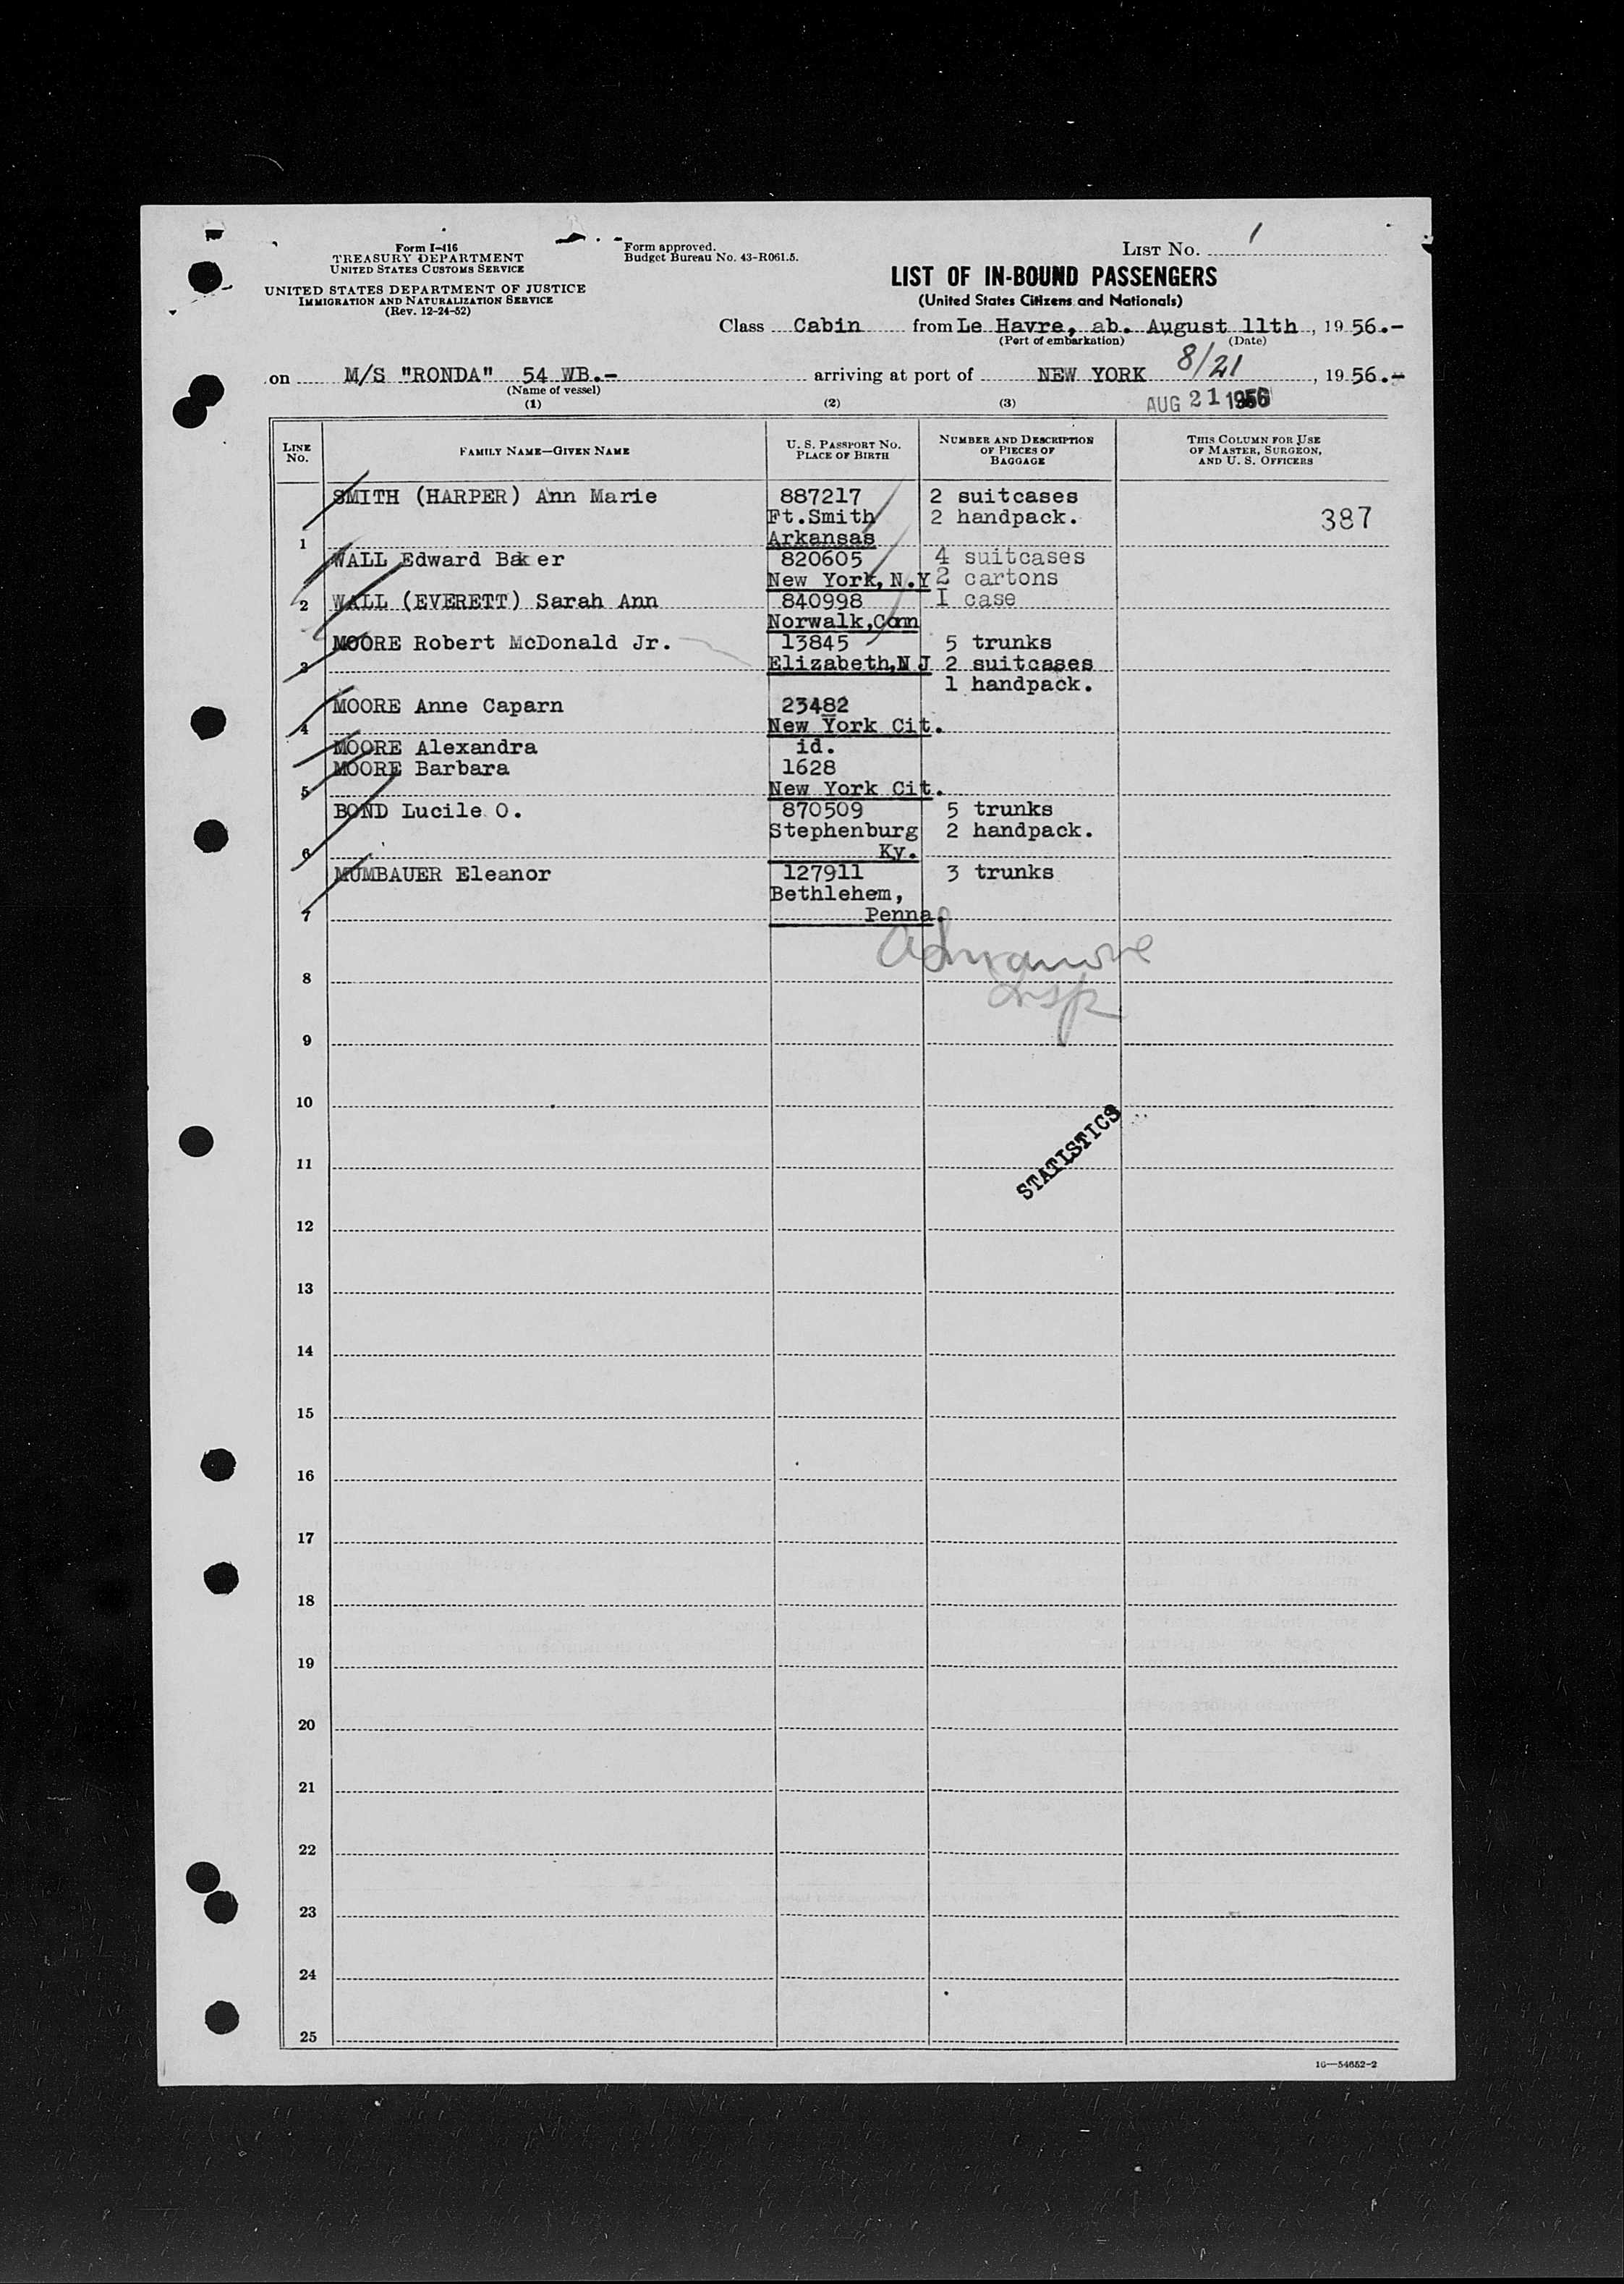 Form I-416
TREASURY DEPARTMENT
UNITED STATES CUSTOMS SERVICE
UNITED STATES DEPARTMENT OF JUSTICE
IMMIGRATION AND NATURALIZATION SERVICE
(Rev. 12-24-52)
Form approved.
Budget Bureau No. 43-R061.5.
LIST No. 1
LIST OF IN-BOUND PASSENGERS
(United States Citizens and Nationals)
Class Cabin from Le Havre, ab. August 11th, 1956.-
(Port of embarkation) (Date)
on M/S "RONDA" 54 WB.- arriving at port of NEW YORK 8/21, 1956.-
(Name of vessel)
AUG 21 1956
(1) (2) (3)
LINE No. FAMILY NAME—GIVEN NAME U. S. PASSPORT NO. PLACE OF BIRTH NUMBER AND DESCRIPTION OF PIECES OF BAGGAGE THIS COLUMN FOR USE OF MASTER, SURGEON, AND U. S. OFFICERS
SMITH (HARPER) Ann Marie 887217 2 suitcases
Ft.Smith 2 handpack. 387
1 Arkansas
WALL Edward Baker 820605 4 suitcases
New York, N.Y 2 cartons
2 WALL (EVERETT) Sarah Ann 840998 1 case
Norwalk,Conn
MOORE Robert McDonald Jr. 13845 5 trunks
3 Elizabeth,N J 2 suitcases
1 handpack.
MOORE Anne Caparn 23482
4 New York Cit.
MOORE Alexandra id.
MOORE Barbara 1628
5 New York Cit.
BOND Lucile O. 870509 5 trunks
Stephenburg 2 handpack.
6 Ky.
MUMBAUER Eleanor 127911 3 trunks
Bethlehem,
7 Penna.
8
Insp
9
10
STATISTICS
11
12
13
14
15
16
17
18
19
20
21
22
23
24
25
16—54652-2